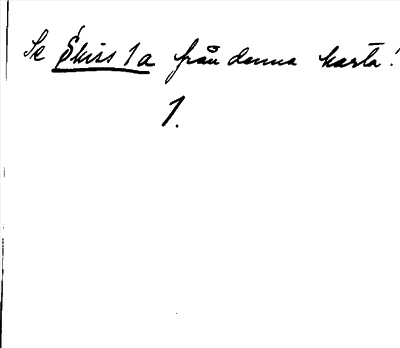 Se Skiss 1a från denna karta!
1.